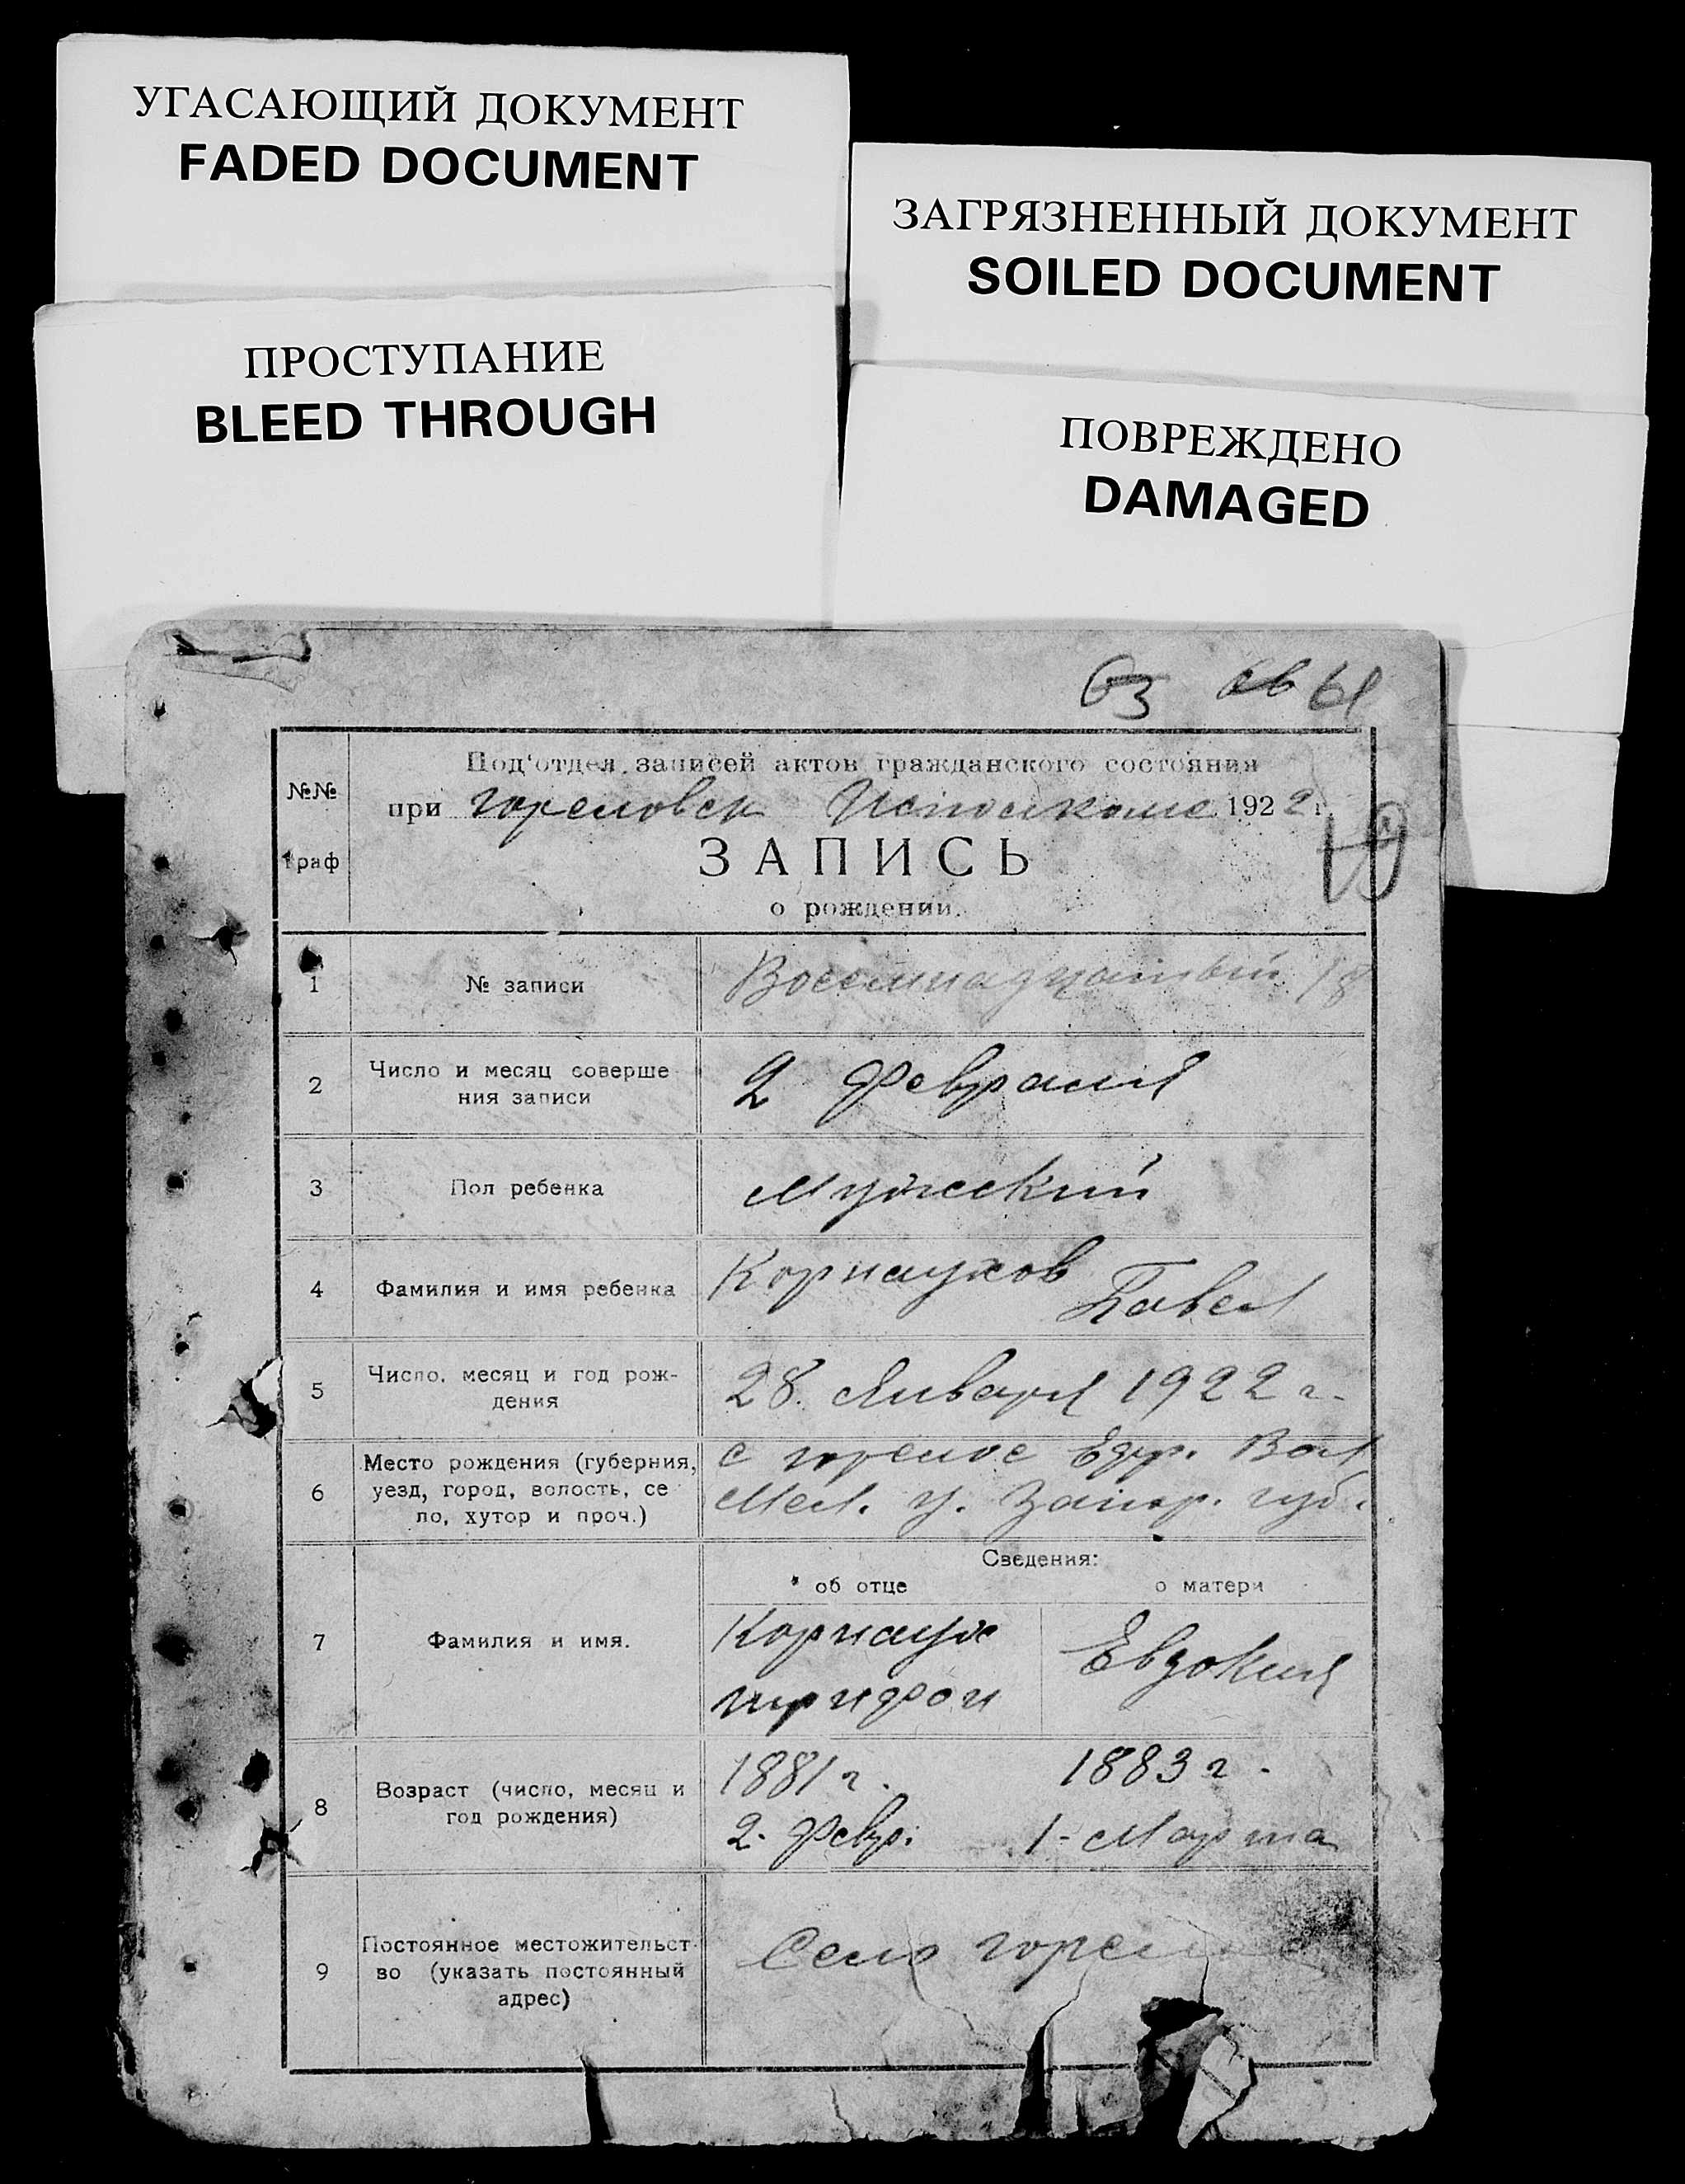 УГАСАЮЩИЙ ДОКУМЕНТ
FADED DOCUMENT
ЗАГРЯЗНЕННЫЙ ДОКУМЕНТ
SOILED DOCUMENT
ПРОСТУПАНИЕ
BLEED THROUGH
ПОВРЕЖДЕНО
DAMAGED
63 61
№№
граф
Под'отдел записей актов гражданского состояния
при Гореловск Исполкоме 1922 г.
ЗАПИСЬ
о рождении.
1
№ записи
Восемнадцатый 18
2
Число и месяц соверше
ния записи
2 Февраля
3
Пол ребенка
Мужский
4
Фамилия и имя ребенка
Корнаухов
Павел
5
Число, месяц и год рож-
дения
28. Января 1922 г.
6
Место рождения (губерния,
уезд, город, волость, се
ло, хутор и проч.)
с Горелое Вол
Мел. у. Запор. губ.
Сведения:
об отце
о матери
7
Фамилия и имя.
Корнаух
Евдокия
8
Возраст (число, месяц и
год рождения)
1881 г.
2. Февр.
1883 г.
1 - Марта
9
Постоянное местожительст-
во (указать постоянный
адрес)
Село Горелое